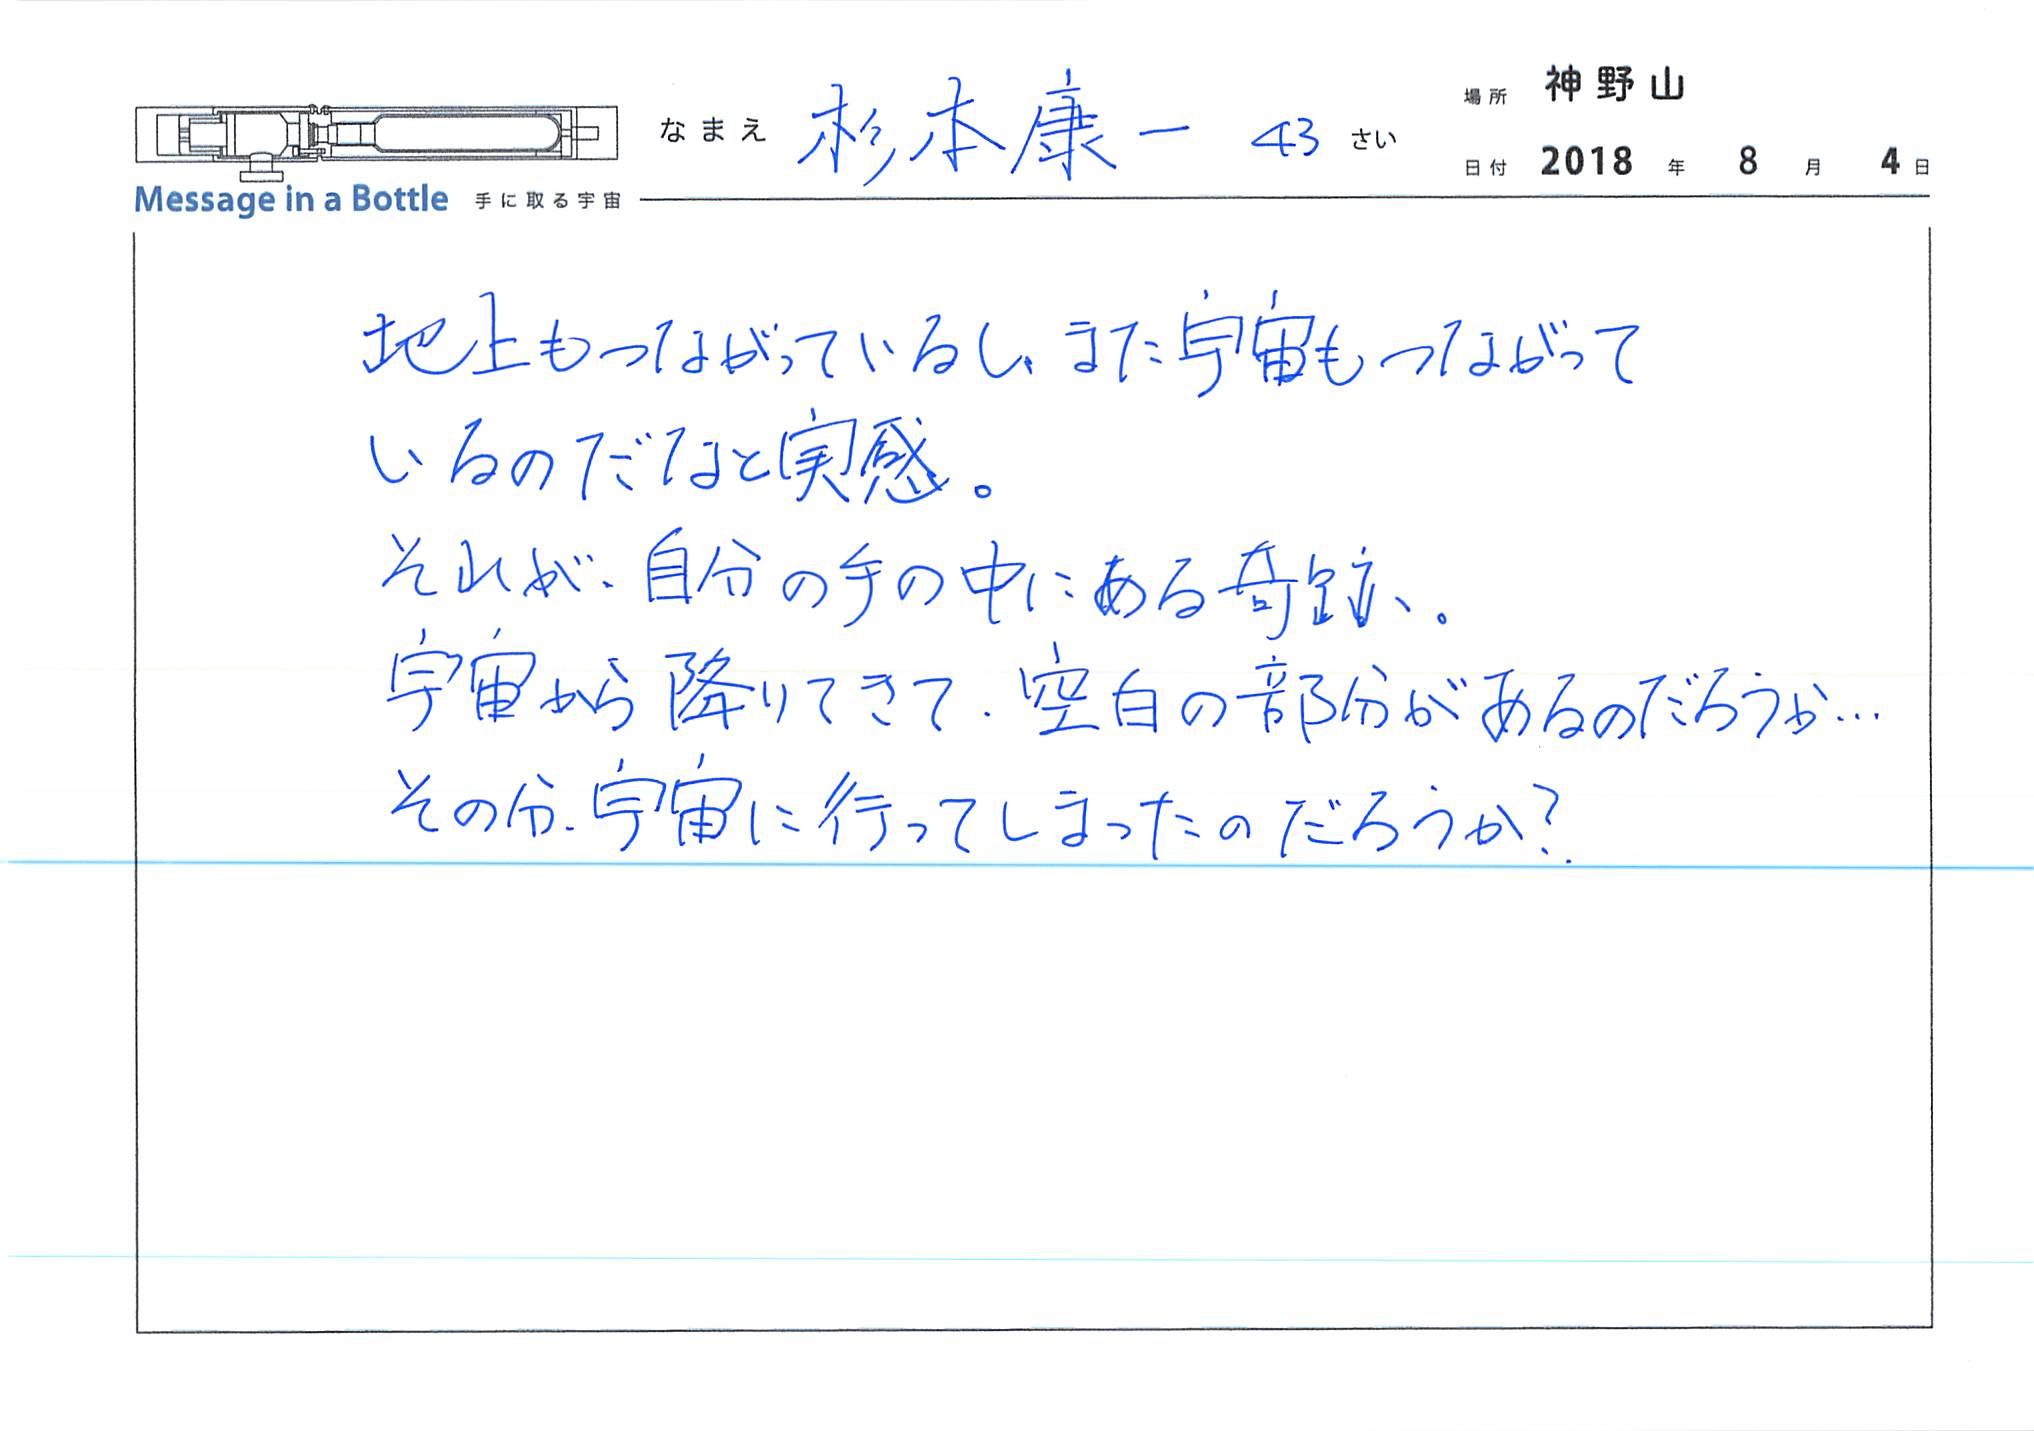 なまえ 杉本康一 43 さい
場所 神野山
日付 2018 年 8 月 4 日
Message in a Bottle 手に取る宇宙
地上もつながっているし、また宇宙もつながって
いるのだなと実感。
それが、自分の手の中にある奇跡、。
宇宙から降りてきて、空白の部分があるのだろうか…
その分、宇宙に行ってしまったのだろうか?